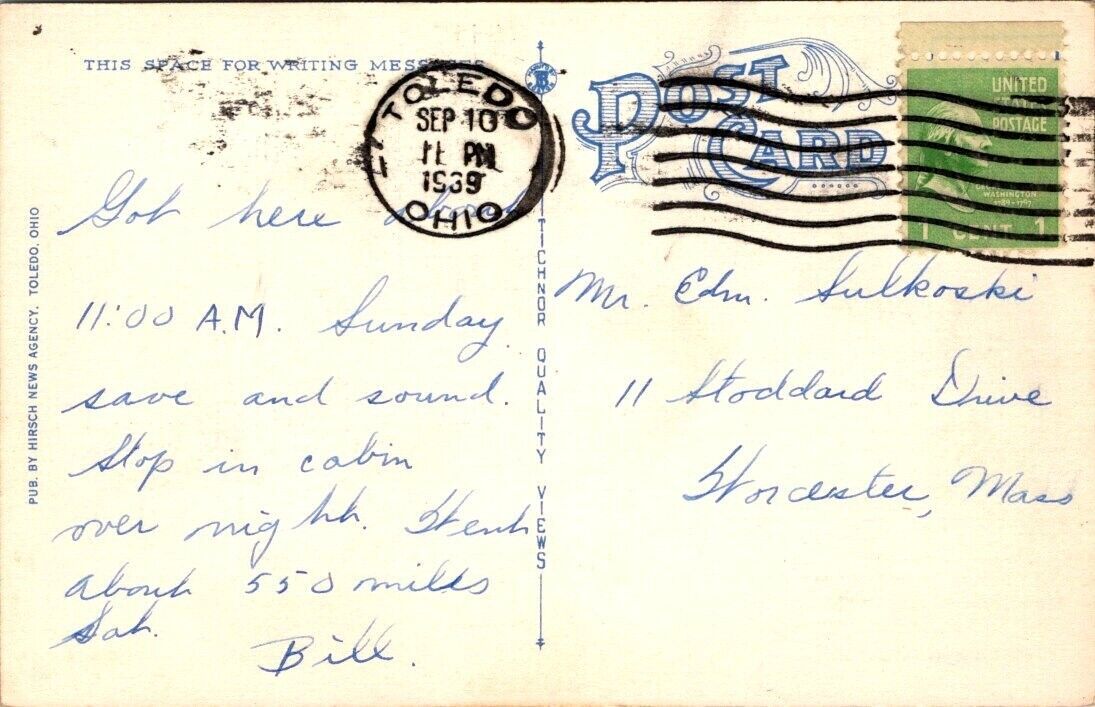 THIS SPACE FOR WRITING MESSAGES
POST CARD
UNITED
STATES
POSTAGE
GEORGE
WASHINGTON
1789-1797
1 CENT 1
TOLEDO
SEP 10
11 PM
1939
OHIO
Got here about
11:00 A.M. Sunday
save and sound.
Stop in cabin
over night. Went
about 550 miles
Sat.
Bill.
Mr. Edm. Sulkoski
11 Stoddard Drive
Worcester, Mass
PUB. BY HIRSCH NEWS AGENCY, TOLEDO, OHIO
TICHNOR QUALITY VIEWS